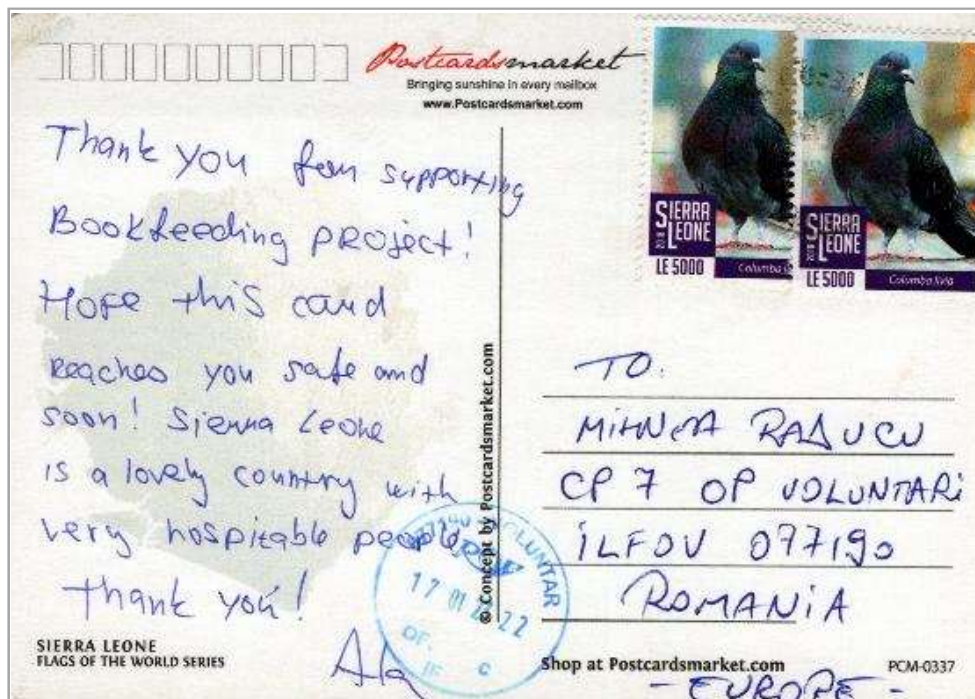 Postcardsmarket
Bringing sunshine in every mailbox
www.Postcardsmarket.com
Thank you for supporting
Bookfeeding project!
Hope this card
reaches you safe and
soon! Sierra Leone
is a lovely country with
very hospitable people
Thank you!
Ala
SIERRA LEONE
FLAGS OF THE WORLD SERIES
© Concept by Postcardsmarket.com
SIERRA
LEONE
2018
LE 5000
Columba
SIERRA
LEONE
2018
LE 5000
Columba livia
TO:
MIHNEA RADUCU
CP 7 OP VOLUNTARI
ILFOV 077190
ROMANIA
- EUROPE -
VOLUNTAR
17 01 22
OF.
IF C
Shop at Postcardsmarket.com
PCM-0337